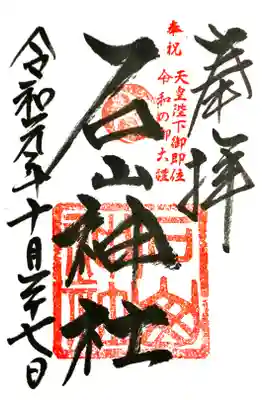 奉拝
奉祝 天皇陛下御即位
令和の御大礼
石山神社
令和元年十月二十七日